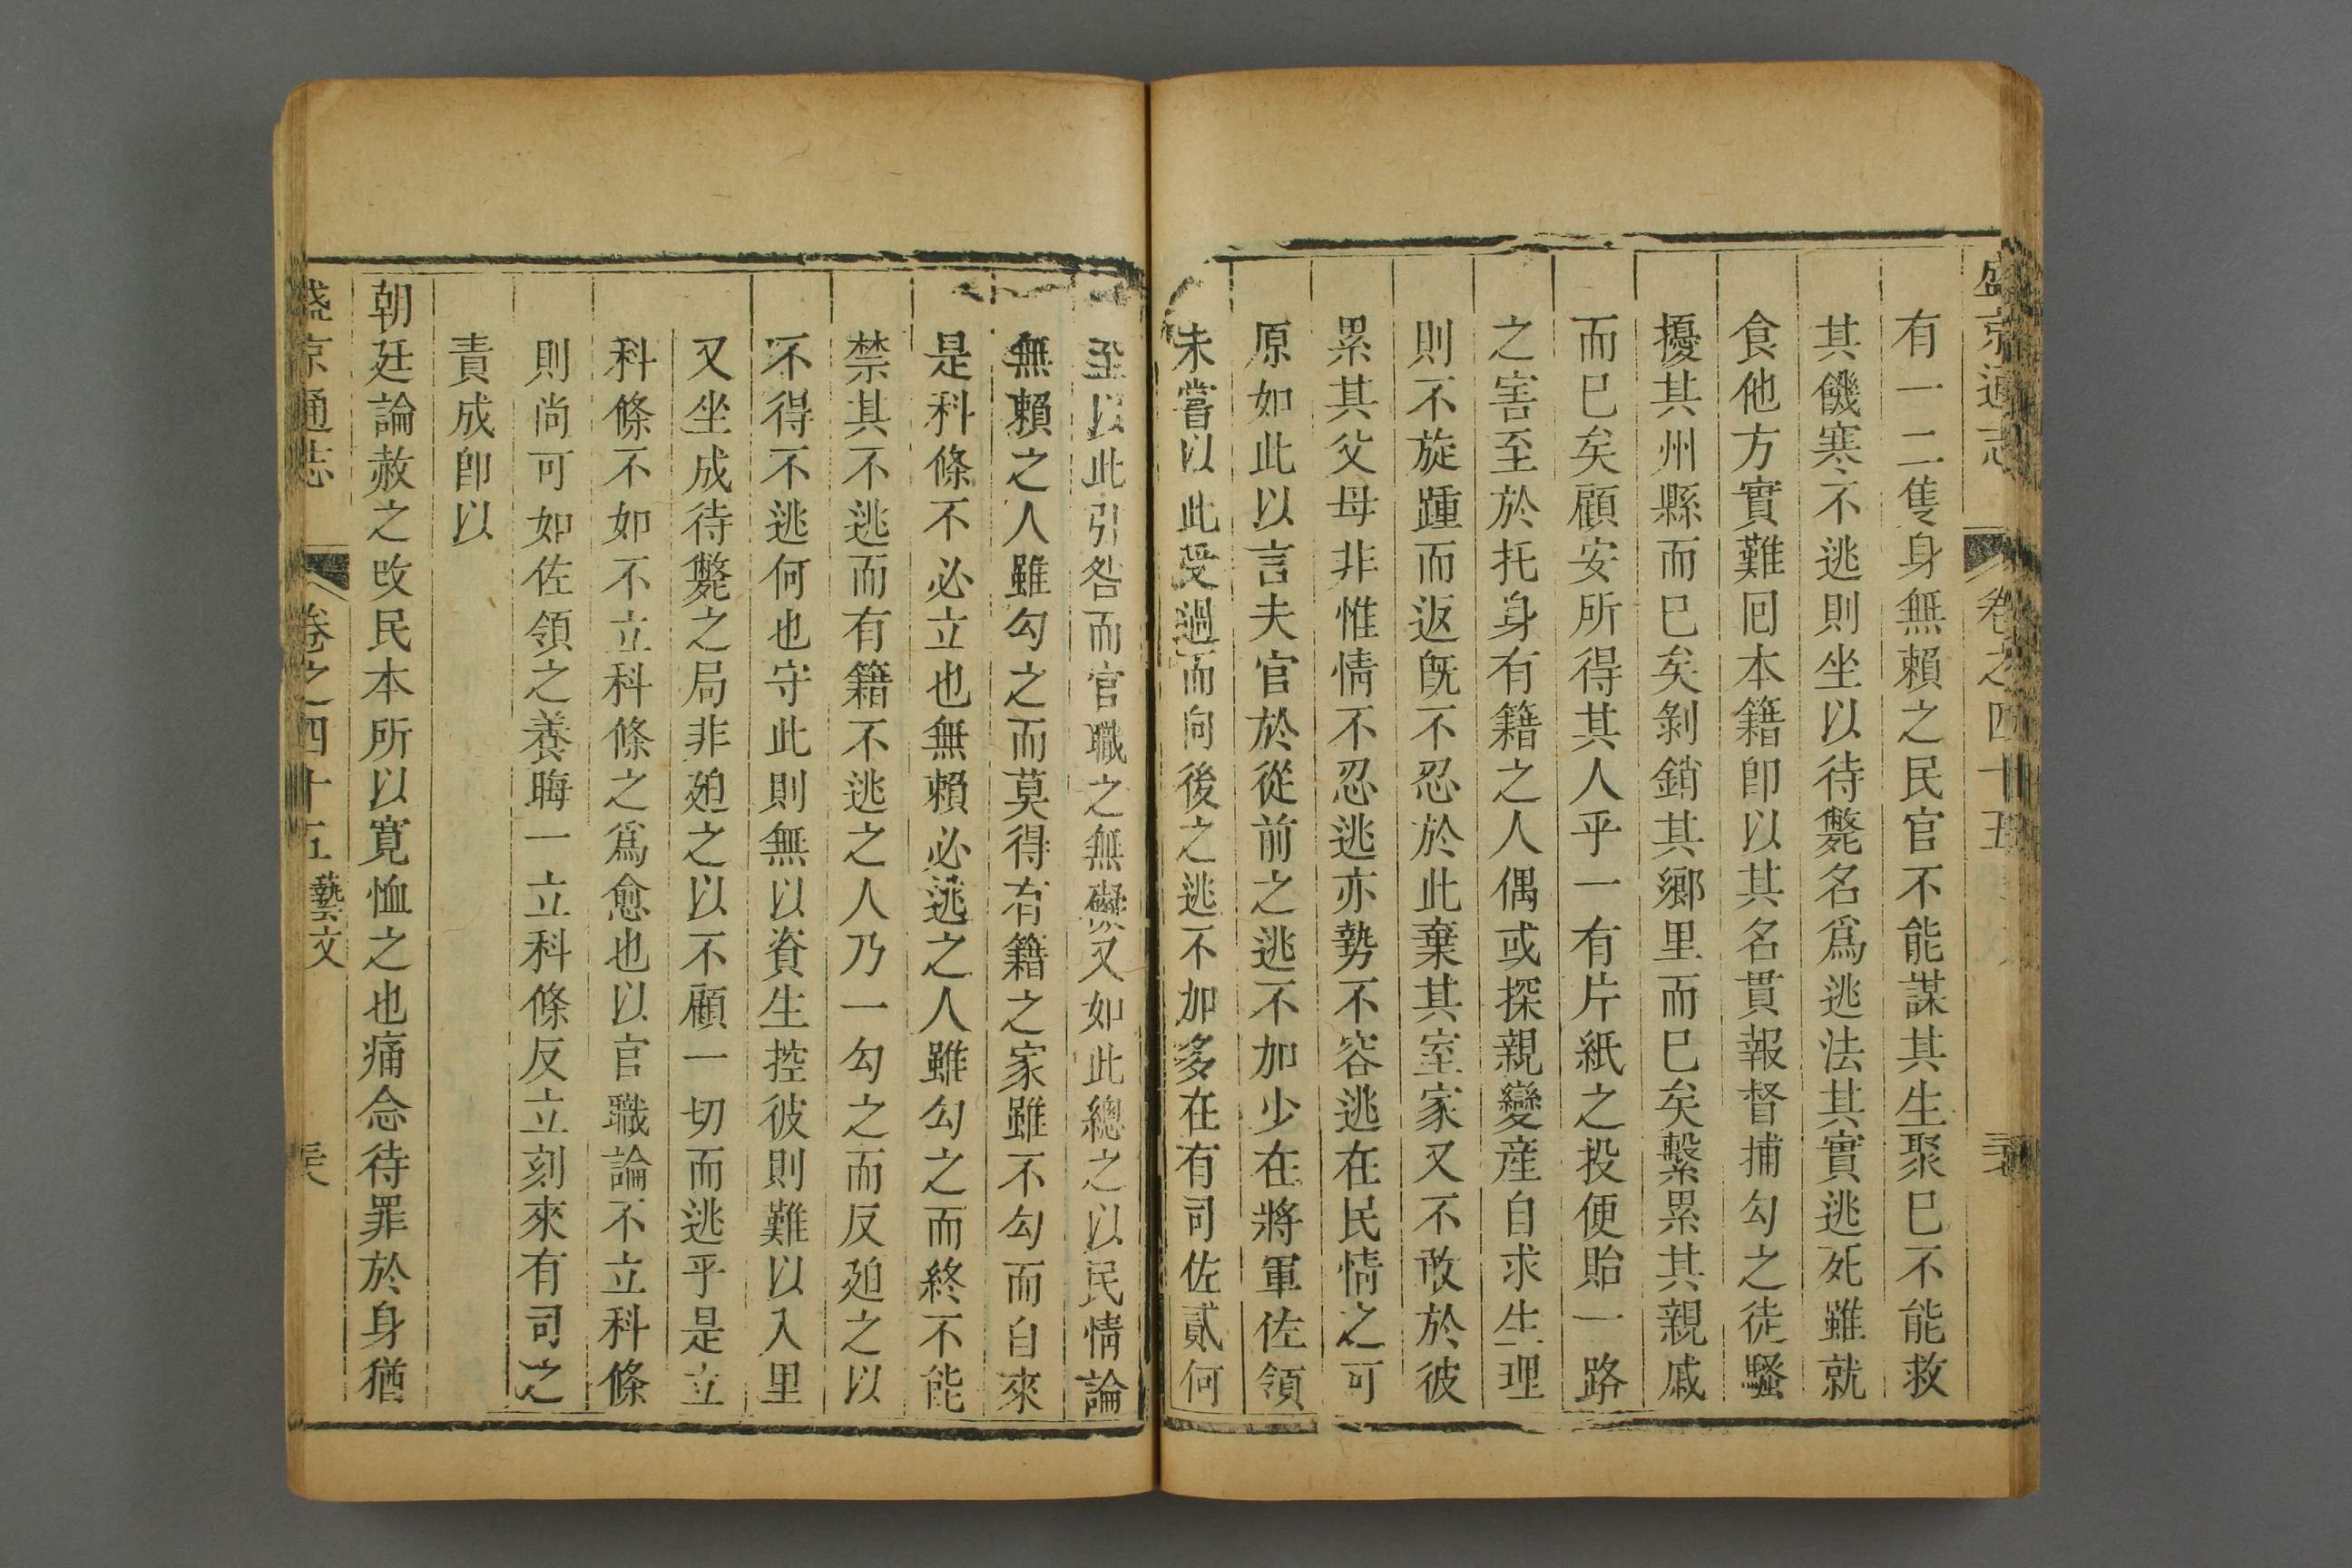 盛京通志 卷之四十五
有一二隻身無賴之民官不能謀其生聚巳不能救
其饑寒不逃則坐以待斃名爲逃法其實逃死雖就
食他方實難囘本籍卽以其名貫報督捕勾之徒騷
擾其州縣而巳矣剝銷其鄉里而巳矣繫累其親戚
而巳矣顧安所得其人乎一有片紙之投便貽一路
之害至於托身有籍之人偶或探親變産自求生理
則不旋踵而返旣不忍於此棄其室家又不敢於彼
累其父母非惟情不忍逃亦勢不容逃在民情之可
原如此以言夫官於從前之逃不加少在將軍佐領
未嘗以此受過而向後之逃不加多在有司佐貳何
至以此引咎而官職之無礙又如此總之以民情論
無賴之人雖勾之而莫得有籍之家雖不勾而自來
是科條不必立也無賴必逃之人雖勾之而終不能
禁其不逃而有籍不逃之人乃一勾之而反廹之以
不得不逃何也守此則無以資生控彼則難以入里
又坐成待斃之局非廹之以不顧一切而逃乎是立
科條不如不立科條之爲愈也以官職論不立科條
則尚可如佐領之養晦一立科條反立刻來有司之
責成卽以
朝廷論赦之攺民本所以寛恤之也痛念待罪於身猶
盛京通志 卷之四十五 藝文